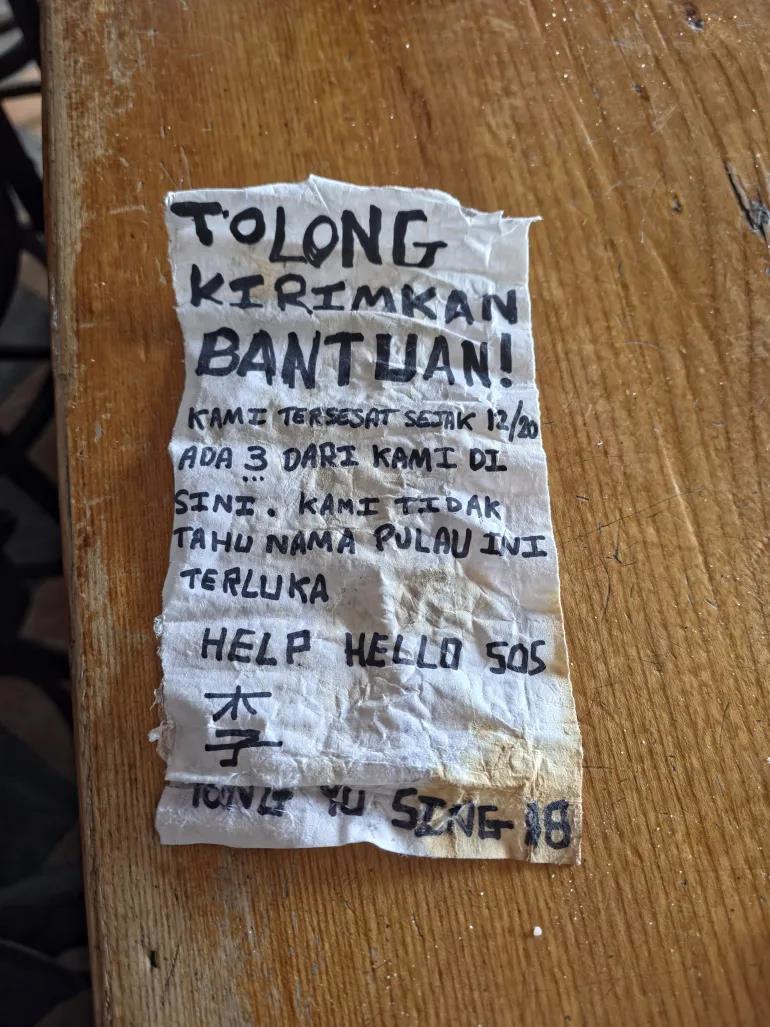 TOLONG
KIRIMKAN
BANTUAN!
KAMI TERSESAT SEJAK 12/20
ADA 3 DARI KAMI DI
SINI. KAMI TIDAK
TAHU NAMA PULAU INI
TERLUKA
HELP HELLO SOS
李
YU SING